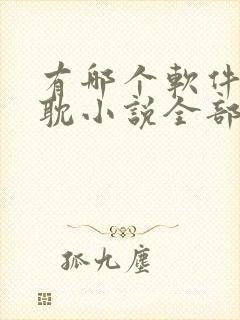 有哪个軟件
耽小説全部
孤九塵